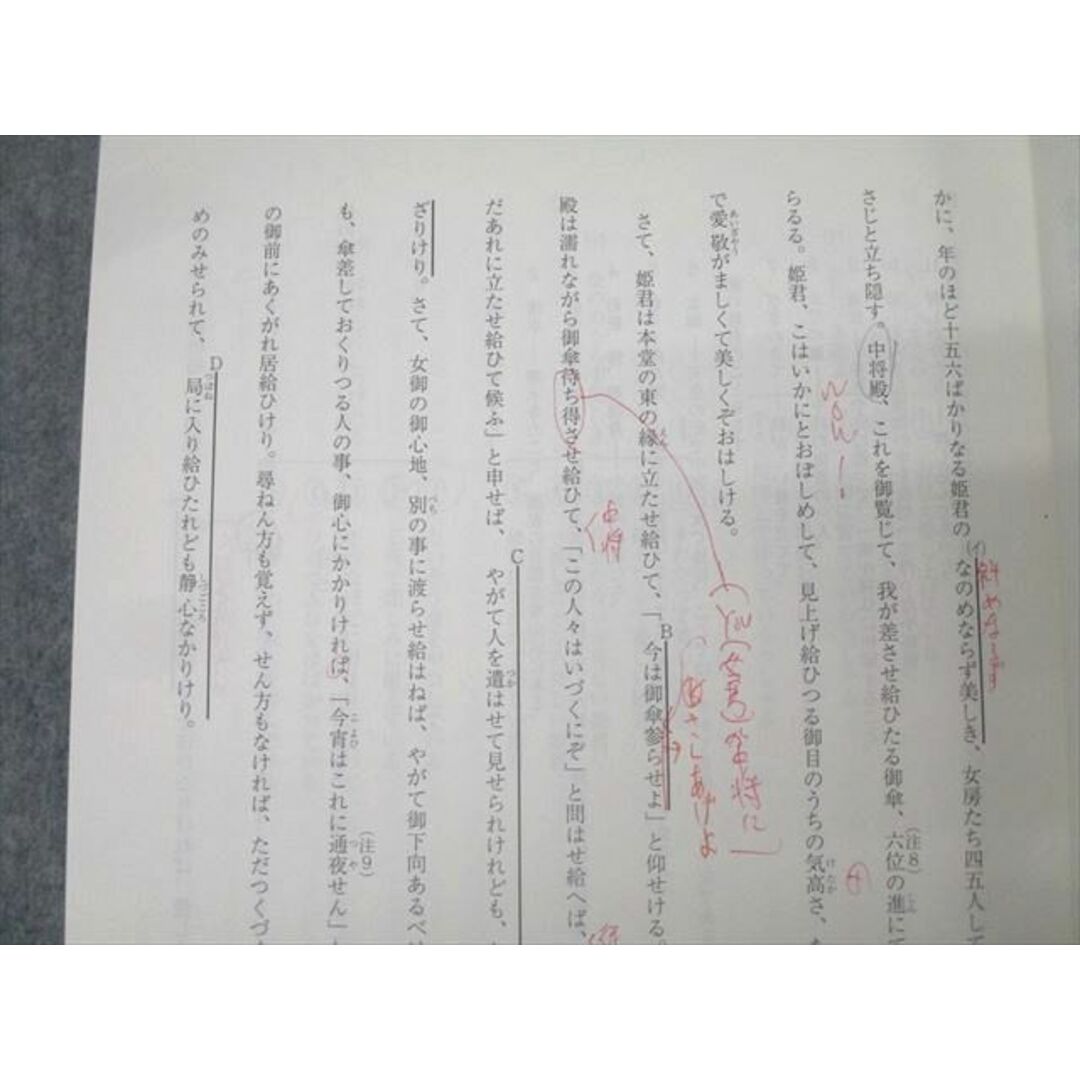 かに、年のほど十五六ばかりなる姫君の(イ)なのめならず美しき、女房たち四五人して
斜めならず
さじと立ち隠す。中将殿、これを御覧じて、我が差させ給ひたる御傘、六位の進にて
(注8)
らるる。姫君、こはいかにとおぼしめして、見上げ給ひつる御目のうちの気高さ、
けだか
で愛敬がましくて美しくぞおはしける。
あいぎやう
さて、姫君は本堂の東の縁に立たせ給ひて、「今は御傘参らせよ」と仰せける。
えん
B
中将
殿は濡れながら御傘待ち得させ給ひて、「この人々はいづくにぞ」と問はせ給へば、
だあれに立たせ給ひて候ふ」と申せば、やがて人を遣はせて見せられけれども、
C
つか
ざりけり。さて、女御の御心地、別の事に渡らせ給はねば、やがて御下向あるべ
べち
も、傘差しておくりつる人の事、御心にかかりければ、「今宵はこれに通夜せん」
こよひ
つや
(注9)
の御前にあくがれ居給ひけり。尋ねん方も覚えず、せん方もなければ、ただつくづ
めのみせられて、局に入り給ひたれども静心なかりけり。
D
つぼね
しづこころ